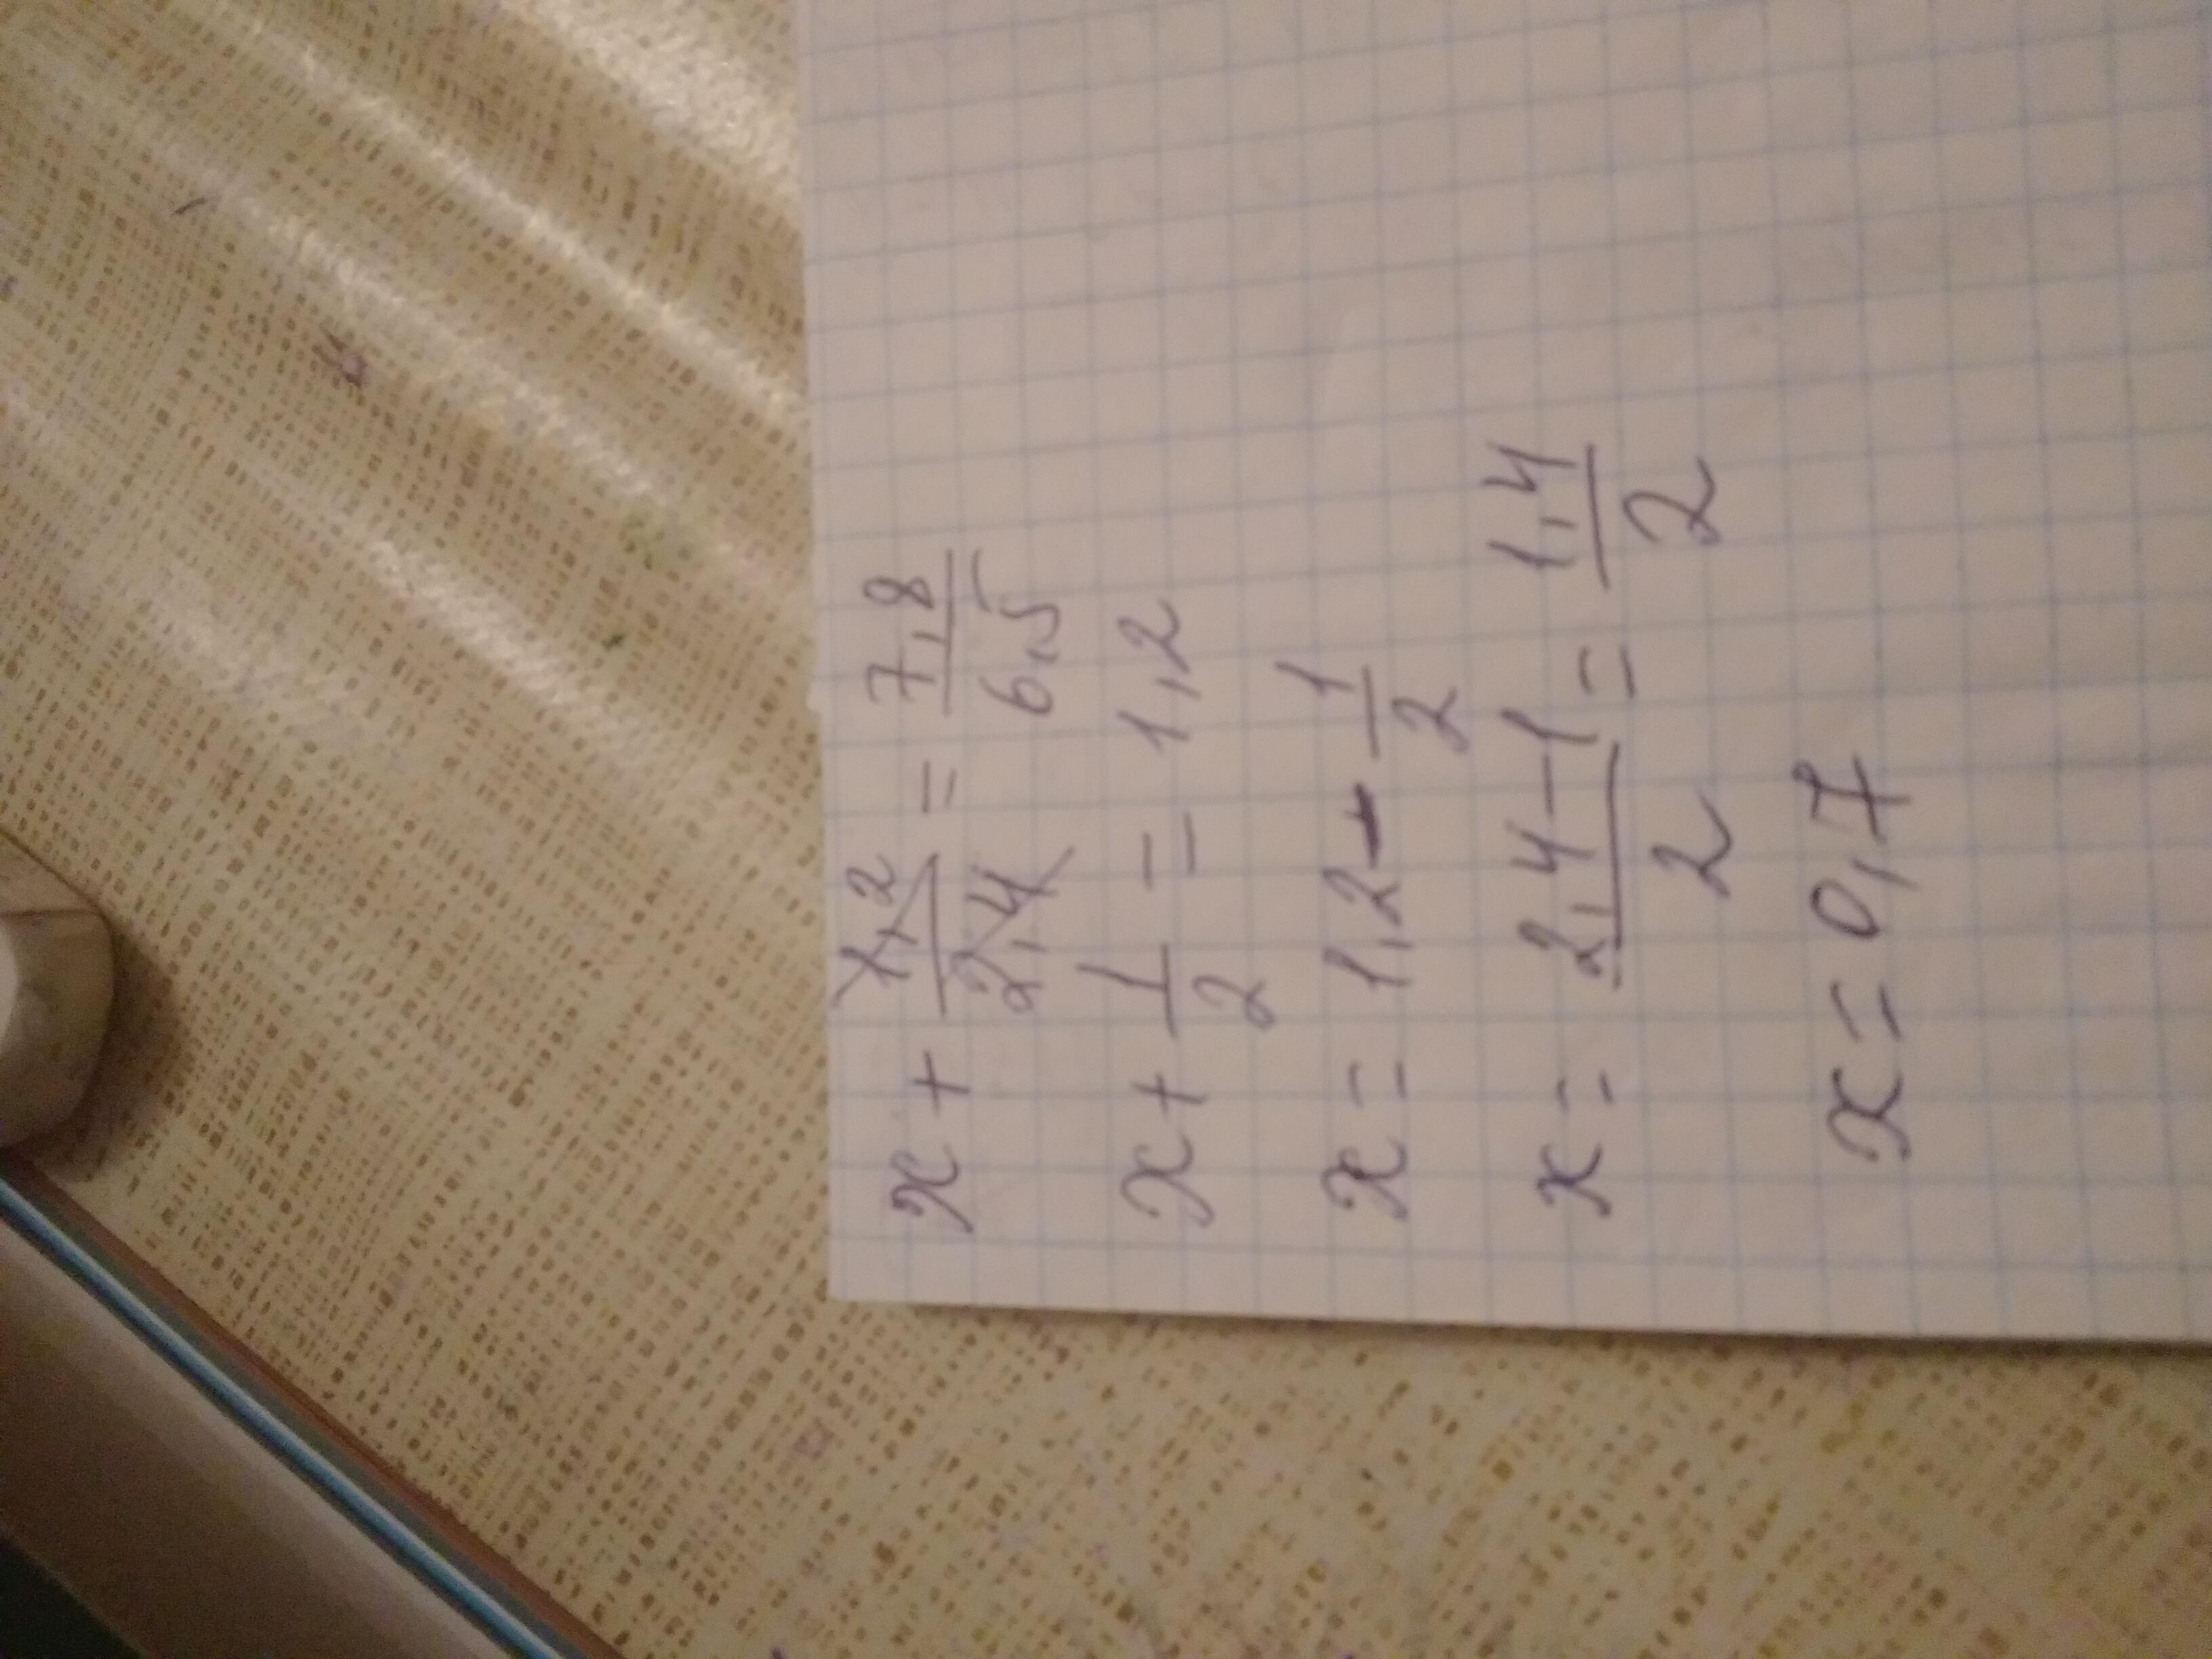 x + 1,2/2,4 = 7,8/6,5
x + 1/2 = 1,2
x = 1,2 - 1/2
x = 2,4-1/2 = 1,4/2
x = 0,7